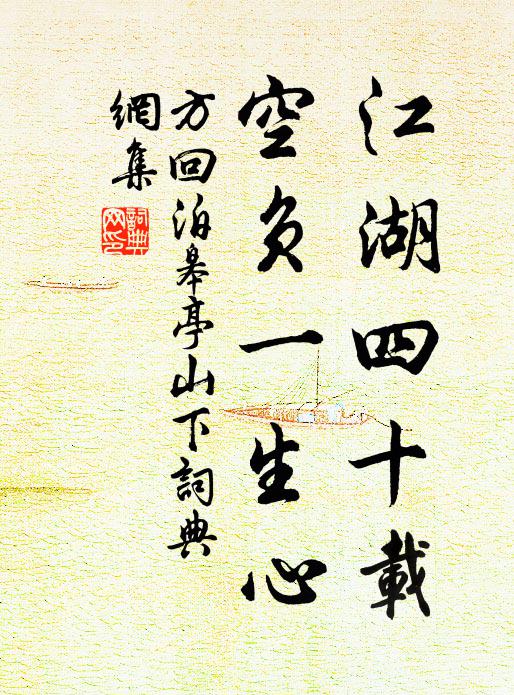 江湖四十載
空負一生心
方回泊皋亭山下詞典
網集
詞典网印